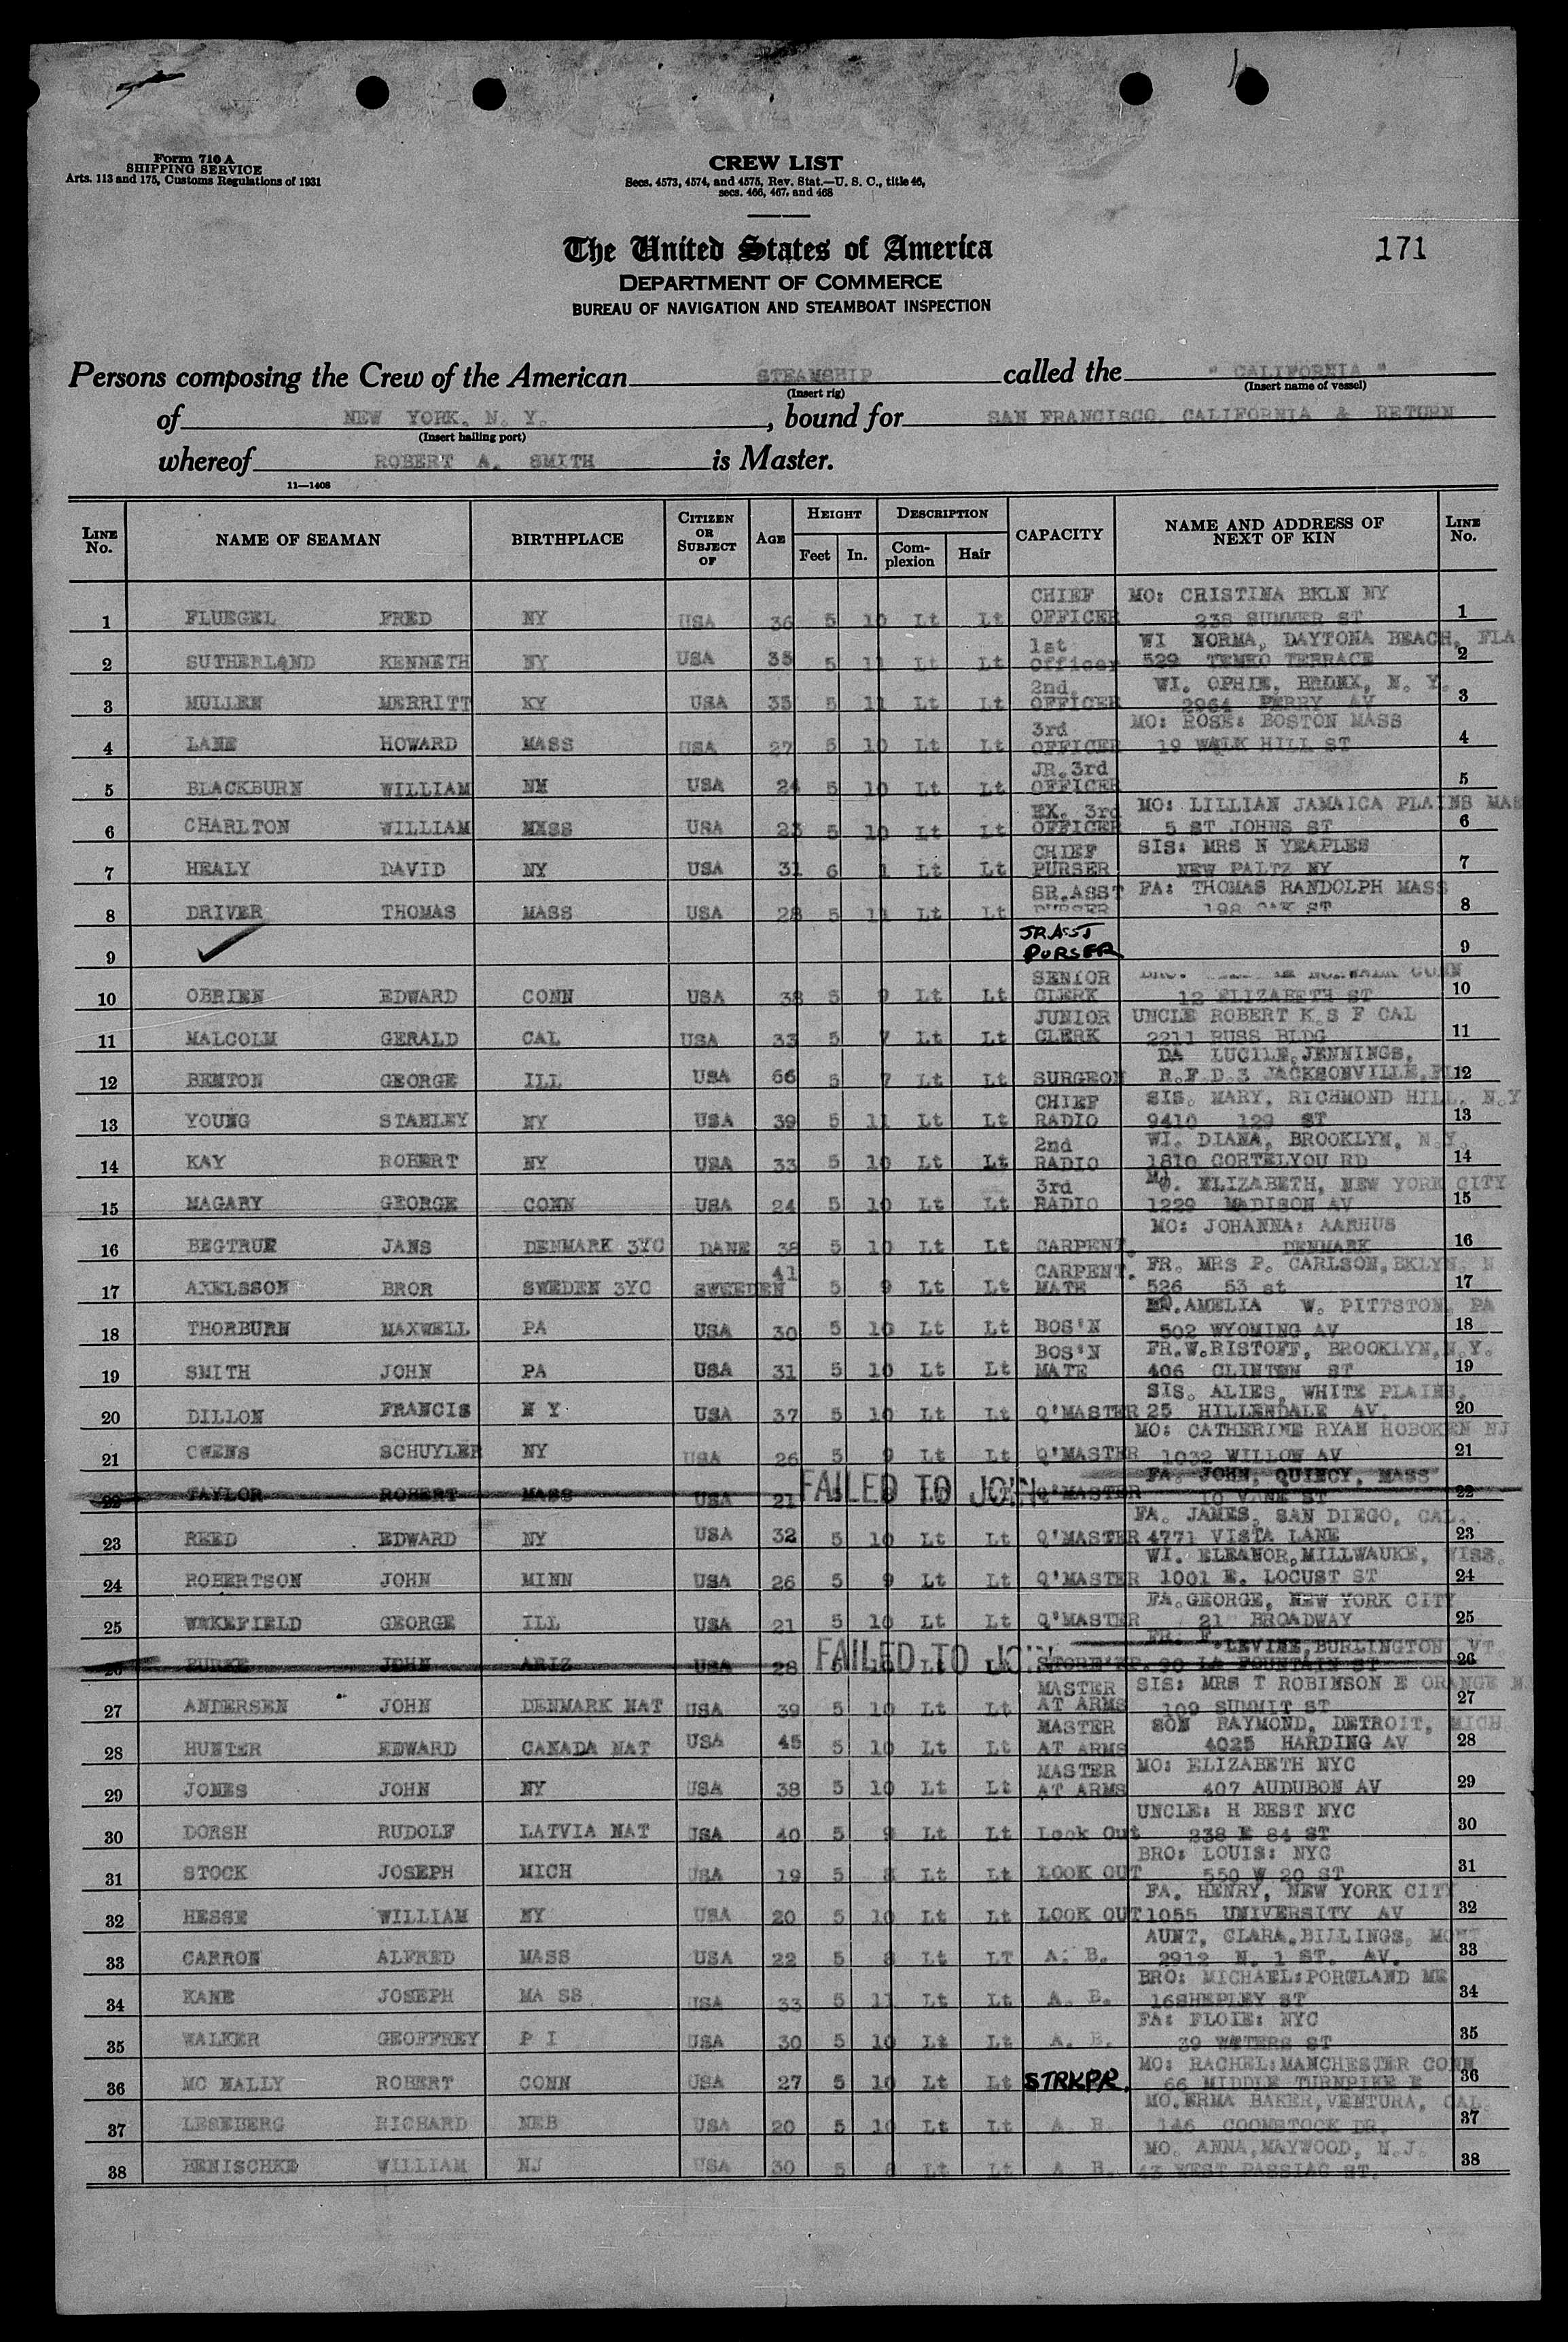 Form 710 A
SHIPPING SERVICE
Arts. 113 and 175, Customs Regulations of 1931
CREW LIST
Secs. 4573, 4574, and 4575, Rev. Stat.—U. S. C., title 46,
secs. 466, 467, and 468
The United States of America
171
DEPARTMENT OF COMMERCE
BUREAU OF NAVIGATION AND STEAMBOAT INSPECTION
Persons composing the Crew of the American STEAMSHIP called the " CALIFORNIA "
(Insert rig) (Insert name of vessel)
of NEW YORK, N. Y. , bound for SAN FRANCISCO, CALIFORNIA & RETURN
(Insert hailing port)
whereof ROBERT A. SMITH is Master.
11—1408
LINE No. NAME OF SEAMAN BIRTHPLACE CITIZEN OR SUBJECT OF AGE HEIGHT Feet In. DESCRIPTION Complexion Hair CAPACITY NAME AND ADDRESS OF NEXT OF KIN LINE No.
CHIEF MO: CRISTINA BKLN NY
1 FLUEGEL FRED NY USA 36 5 10 Lt Lt OFFICER 238 SUMMER ST 1
1st WI NORMA, DAYTONA BEACH, FLA
2 SUTHERLAND KENNETH NY USA 35 5 11 Lt Lt Officer 529 TEMKO TERRACE 2
2nd. WI. OPHIE, BRONX, N. Y.
3 MULLEN MERRITT KY USA 35 5 11 Lt Lt OFFICER 2964 PERRY AV 3
3rd MO: ROSE: BOSTON MASS
4 LANE HOWARD MASS USA 27 5 10 Lt Lt OFFICER 19 WALK HILL ST 4
JR.3rd
5 BLACKBURN WILLIAM NM USA 24 5 10 Lt Lt OFFICER 5
EX. 3rd MO: LILLIAN JAMAICA PLAINS MAS
6 CHARLTON WILLIAM MASS USA 23 5 10 Lt Lt OFFICER 5 ST JOHNS ST 6
CHIEF SIS: MRS N YEAPLES
7 HEALY DAVID NY USA 31 6 1 Lt Lt PURSER NEW PALTZ NY 7
SR.ASST FA: THOMAS RANDOLPH MASS
8 DRIVER THOMAS MASS USA 28 5 11 Lt Lt PURSER 198 OAK ST 8
JR ASST
9 PURSER 9
SENIOR BRO. NORWALK CONN
10 OBRIEN EDWARD CONN USA 38 5 9 Lt Lt CLERK 12 ELIZABETH ST 10
JUNIOR UNCLE ROBERT K.S F CAL
11 MALCOLM GERALD CAL USA 33 5 7 Lt Lt CLERK 2211 RUSS BLDG 11
DA LUCILE,JENNINGS,
12 BENTON GEORGE ILL USA 66 5 7 Lt Lt SURGEON R.F.D.3 JACKSONVILLE, 12
CHIEF SIS. MARY, RICHMOND HILL, N.Y
13 YOUNG STANLEY NY USA 39 5 11 Lt Lt RADIO 9410 129 ST 13
2nd WI. DIANA, BROOKLYN, N.Y.
14 KAY ROBERT NY USA 33 5 10 Lt Lt RADIO 1810 CORTELYOU RD 14
3rd MO. ELIZABETH, NEW YORK CITY
15 MAGARY GEORGE CONN USA 24 5 10 Lt Lt RADIO 1229 MADISON AV 15
MO: JOHANNA: AARHUS
16 BEGTRUE JANS DENMARK 3YC DANE 38 5 10 Lt Lt CARPENT. DENMARK 16
CARPENT. FR. MRS P. CARLSON,BKLYN. N
17 AXELSSON BROR SWEDEN 3YC SWEEDEN 41 5 9 Lt Lt MATE 526 53 st 17
AMELIA W. PITTSTON, PA
18 THORBURN MAXWELL PA USA 30 5 10 Lt Lt BOS'N 502 WYOMING AV 18
BOS'N FR.W.RISTOFF, BROOKLYN,N.Y.
19 SMITH JOHN PA USA 31 5 10 Lt Lt MATE 406 CLINTON ST 19
SIS. ALIES, WHITE PLAINS,
20 DILLON FRANCIS N Y USA 37 5 10 Lt Lt Q'MASTER 25 HILLENDALE AV. 20
MO: CATHERINE RYAN HOBOKEN NJ
21 OWENS SCHUYLER NY USA 26 5 9 Lt Lt Q'MASTER 1032 WILLOW AV 21
FAILED TO JOIN FA. JOHN, QUINCY, MASS
22 TAYLOR ROBERT MASS USA 21 Q'MASTER 10 ST 22
FA. JAMES, SAN DIEGO, CAL.
23 REED EDWARD NY USA 32 5 10 Lt Lt Q'MASTER 4771 VISTA LANE 23
WI. ELEANOR,MILLWAUKE, WISS.
24 ROBERTSON JOHN MINN USA 26 5 9 Lt Lt Q'MASTER 1001 E. LOCUST ST 24
FA.GEORGE, NEW YORK CITY
25 WAKEFIELD GEORGE ILL USA 21 5 10 Lt Lt Q'MASTER 21 BROADWAY 25
FAILED TO JOIN FR. F. LEVINE,BURLINGTON, VT.
26 BURKE JOHN ARIZ USA 28 5 Lt Lt STORE'KP. 90 LA FOUNTAIN ST 26
MASTER SIS: MRS T ROBINSON E ORANGE N
27 ANDERSEN JOHN DENMARK NAT USA 39 5 10 Lt Lt AT ARMS 109 SUMMIT ST 27
MASTER SON RAYMOND, DETROIT, MICH
28 HUNTER EDWARD CANADA NAT USA 45 5 10 Lt Lt AT ARMS 4025 HARDING AV 28
MASTER MO: ELIZABETH NYC
29 JONES JOHN NY USA 38 5 10 Lt Lt AT ARMS 407 AUDUBON AV 29
UNCLE: H BEST NYC
30 DORSH RUDOLF LATVIA NAT USA 40 5 9 Lt Lt Look Out 238 E 84 ST 30
BRO: LOUIS: NYC
31 STOCK JOSEPH MICH USA 19 5 8 Lt Lt LOOK OUT 550 W 20 ST 31
FA. HENRY, NEW YORK CITY
32 HESSE WILLIAM NY USA 20 5 10 Lt Lt LOOK OUT 1055 UNIVERSITY AV 32
AUNT, CLARA,BILLINGS, MONT.
33 CARRON ALFRED MASS USA 22 5 8 Lt LT A. B. 2912 N. 1 ST. AV. 33
BRO: MICHAEL:PORTLAND ME
34 KANE JOSEPH MA SS USA 33 5 11 Lt Lt A. B. 16SHEPLEY ST 34
FA: FLOIE: NYC
35 WALKER GEOFFREY P I USA 30 5 10 Lt Lt A. B. 39 WATERS ST 35
MO: RACHEL:MANCHESTER CONN
36 MC NALLY ROBERT CONN USA 27 5 10 Lt Lt STRKPR. 66 MIDDLE TURNPIKE E 36
MO.ERMA BAKER,VENTURA, CAL.
37 LESEBERG RICHARD NEB USA 20 5 10 Lt Lt A. B. 146 COOMSTOCK DR. 37
MO. ANNA,MAYWOOD, N.J.
38 BENISCHKE WILLIAM NJ USA 30 5 8 Lt Lt A. B. 43 WEST PASSIAC ST. 38